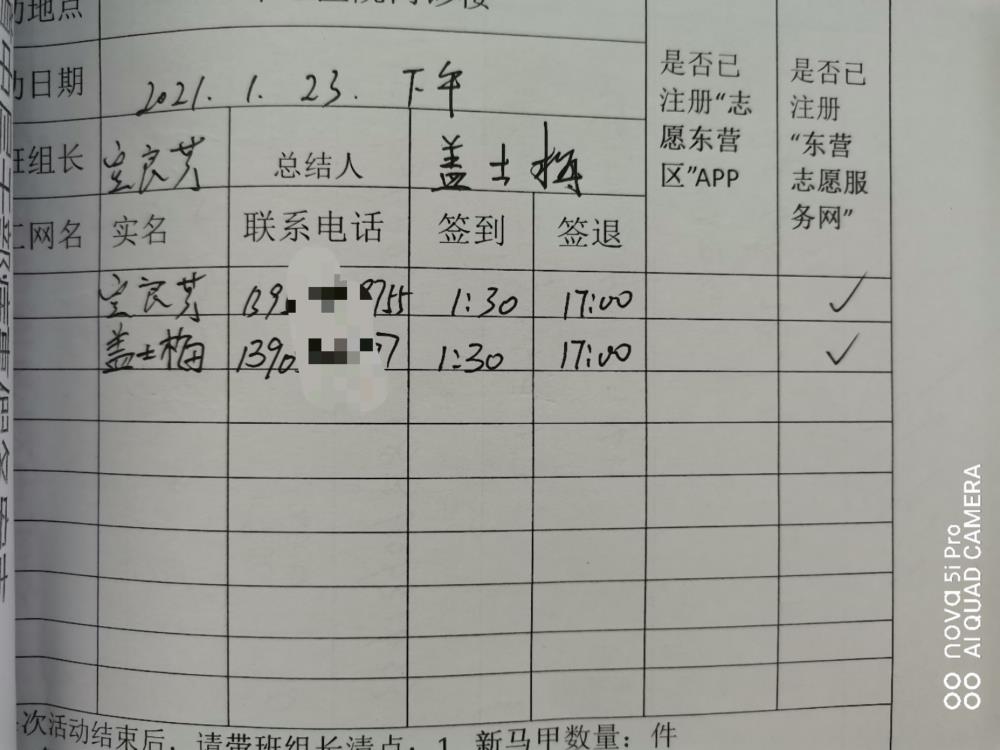 动地点
动日期 2021. 1. 23. 下午
班组长 良芳 总结人 盖士梅
是否已注册“志愿东营区”APP
是否已注册“东营志愿服务网”
网名 实名 联系电话 签到 签退
良芳 139 8755 1:30 17:00 ✓
盖士梅 1390 77 1:30 17:00 ✓
次活动结束后，请带班组长清点：1、新马甲数量： 件
nova 5i Pro
AI QUAD CAMERA